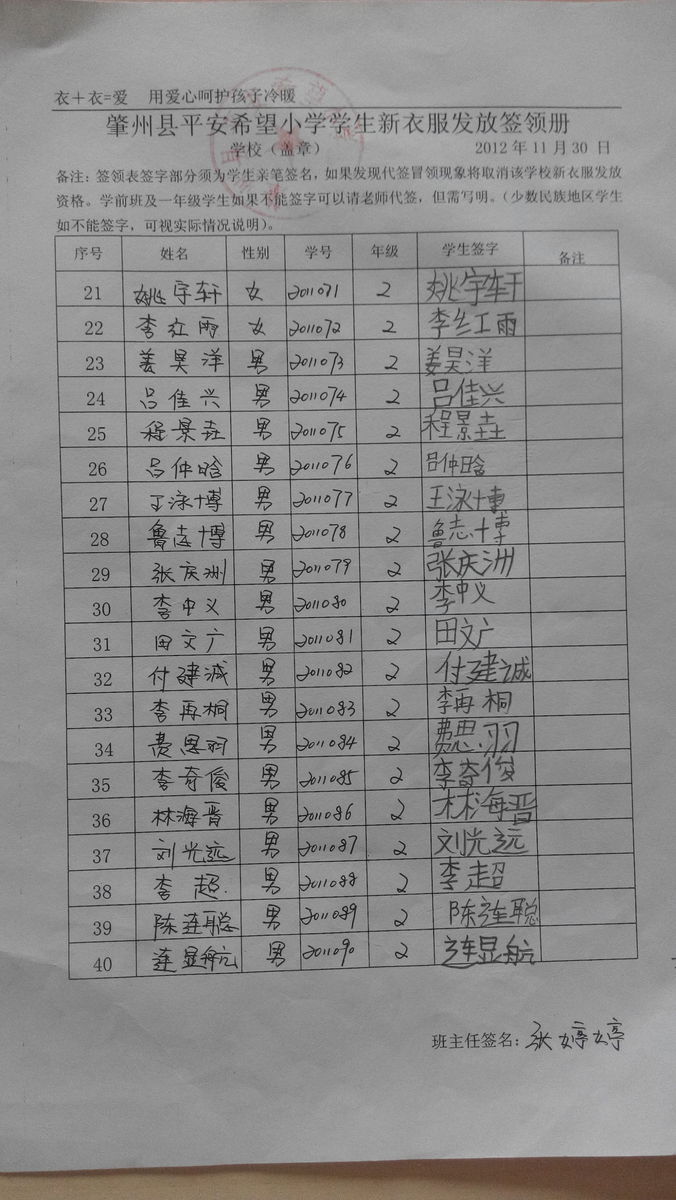 衣+衣=爱 用爱心呵护孩子冷暖
肇州县平安希望小学学生新衣服发放签领册
学校（盖章） 2012 年 11 月 30 日
备注：签领表签字部分须为学生亲笔签名，如果发现代签冒领现象将取消该学校新衣服发放
资格。学前班及一年级学生如果不能签字可以请老师代签，但需写明。（少数民族地区学生
如不能签字，可视实际情况说明）。
序号 姓名 性别 学号 年级 学生签字 备注
21 姚宇轩 女 2011071 2 姚宇轩
22 李红雨 女 2011072 2 李红雨
23 姜昊洋 男 2011073 2 姜昊洋
24 吕佳兴 男 2011074 2 吕佳兴
25 程景垚 男 2011075 2 程景垚
26 吕仲晗 男 2011076 2 吕仲晗
27 王泳博 男 2011077 2 王泳博
28 鲁志博 男 2011078 2 鲁志博
29 张庆洲 男 2011079 2 张庆洲
30 李中义 男 2011080 2 李中义
31 田文广 男 2011081 2 田文广
32 付建诚 男 2011082 2 付建诚
33 李再桐 男 2011083 2 李再桐
34 费思羽 男 2011084 2 费思羽
35 李奇俊 男 2011085 2 李奇俊
36 林海晋 男 2011086 2 林海晋
37 刘光远 男 2011087 2 刘光远
38 李超 男 2011088 2 李超
39 陈连聪 男 2011089 2 陈连聪
40 连显航 男 2011090 2 连显航
班主任签名：张婷婷